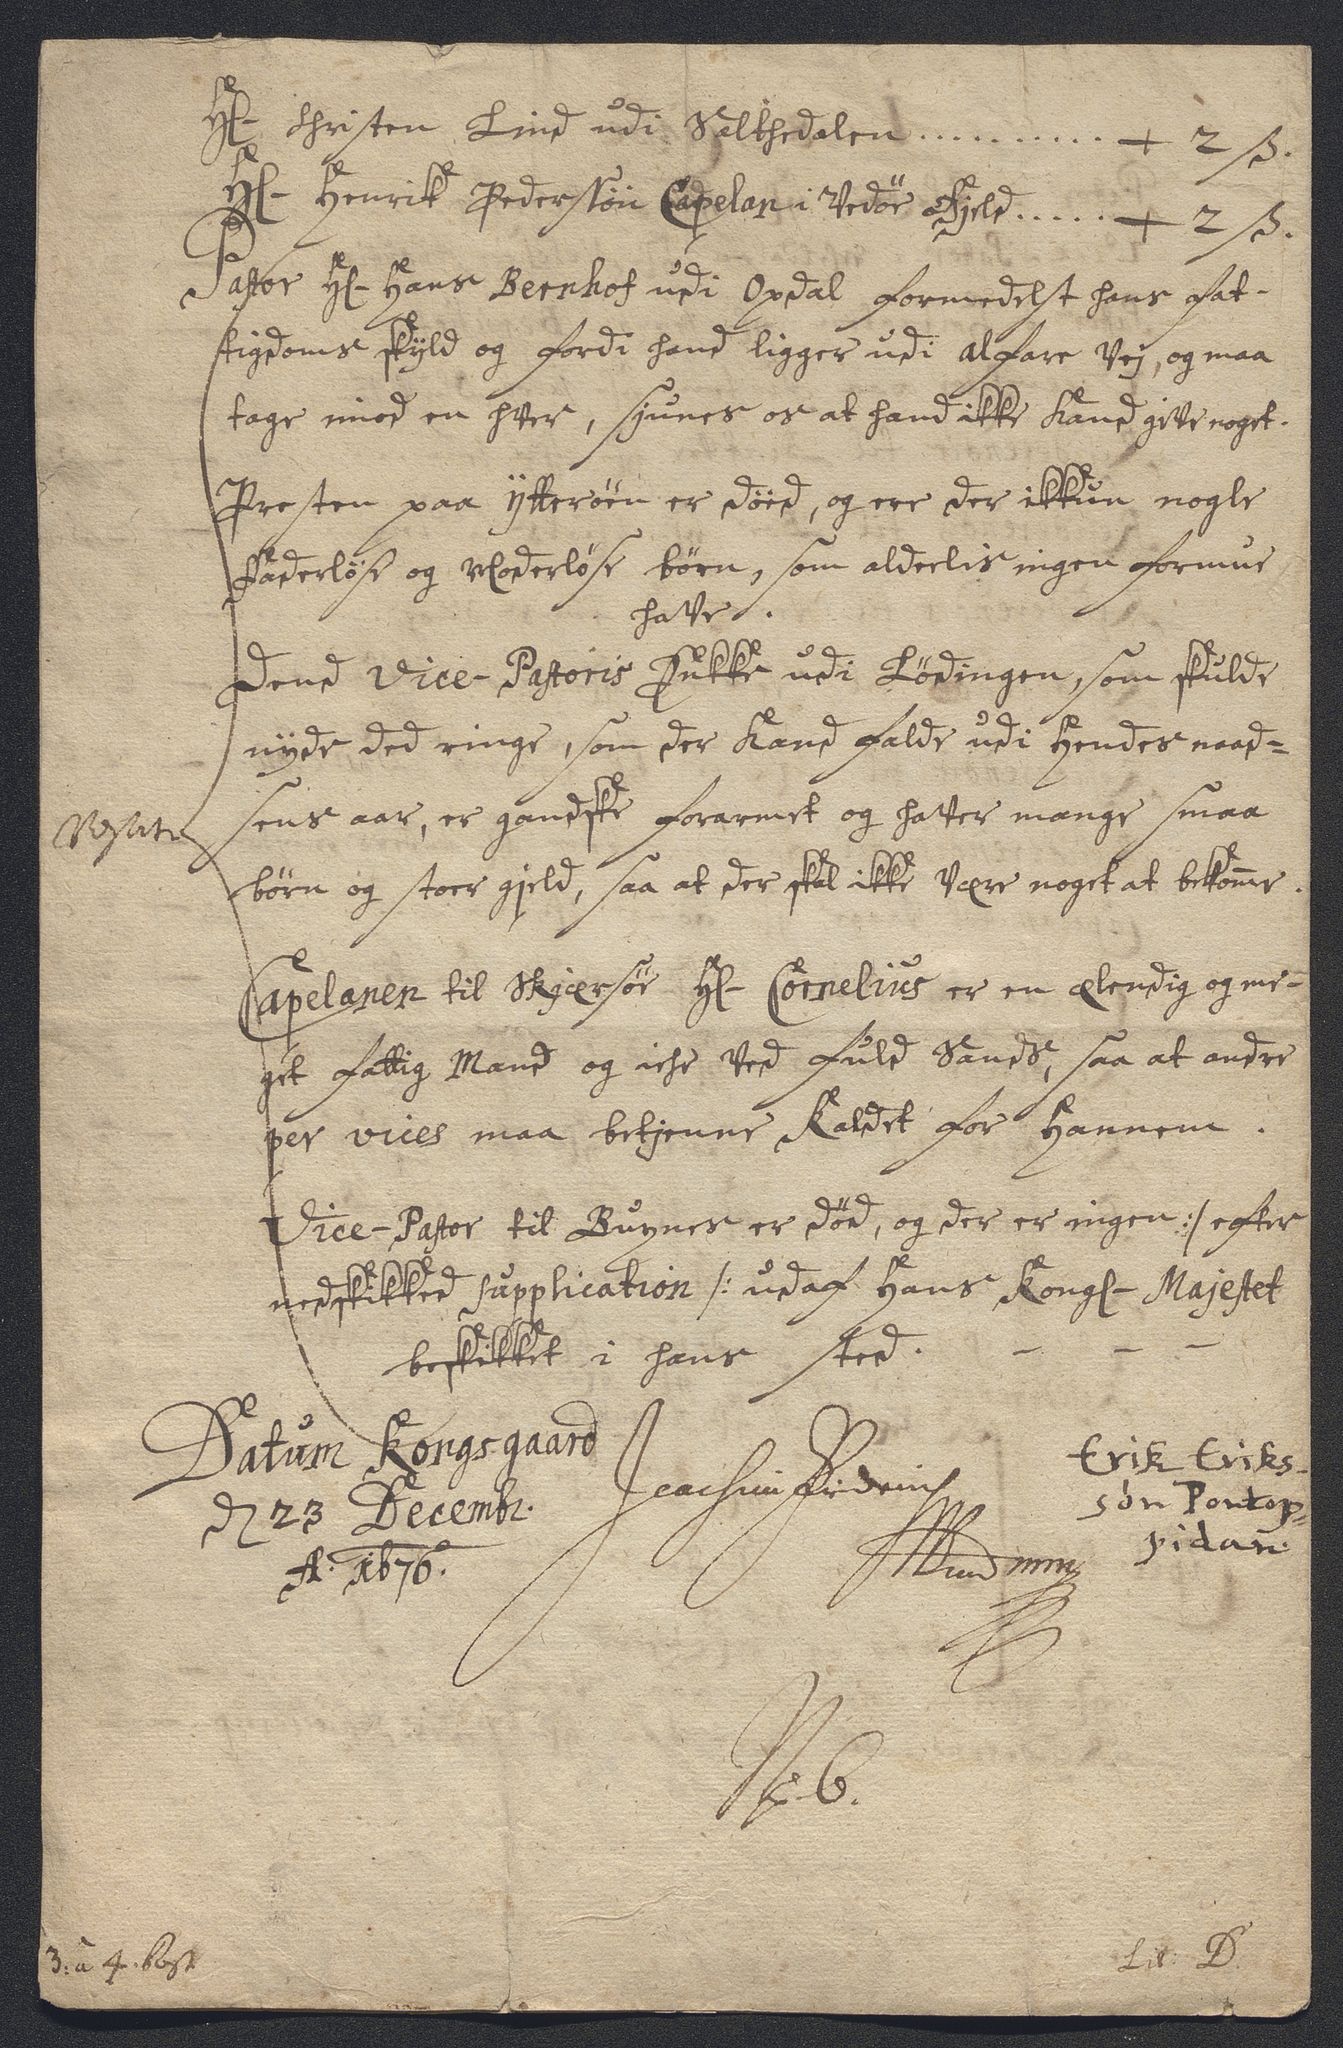 Hr Christen Lind udi Salthedalen .......... + 2 ß.
Hr Henrik Pedersøn Capelan i Vedøe Gjeld ..... + 2 ß.
Pastor Hr Hans Bernhof udi Opdal formedelst hans fat-
tigdoms skyld og fordi hand ligger udi alfare Vej, og maa
tage imod en hver, siunes os at hand ikke kand give noget.
Presten paa Ytterøen er døed, og ere der ikkun nogle
Faderløse og Moderløse børn, som alderlis ingen formue
have.
Dend Vice-Pastoris Enkke udi Lødingen, som skulde
nyde ded ringe, som der kand falde udi Hendes naad=
sens aar, er gandske forarmet og haver mange smaa
børn og stoer gjeld, saa at der skal ikke være noget at bekomme.
Capelanen til Skjærsøe Hr Cornelius er en ælendig og me-
get fattig Mand og iche ved fuld Sands, saa at andre
per vices maa betjenne Kaldet for Hannem.
Vice-Pastor til Buynes er død, og der er ingen :/ efter
nedskikked supplication /: udaf Hans Kongl- Majestet
beskikket i hans sted. - - -
Datum Kongsgaard
d 23 Decembr.
A. 1676.
Joachim Frideric
Erik Eriks-
søn Pontop=
pidan.
No 6.
3. a 4. post
Lit: D.